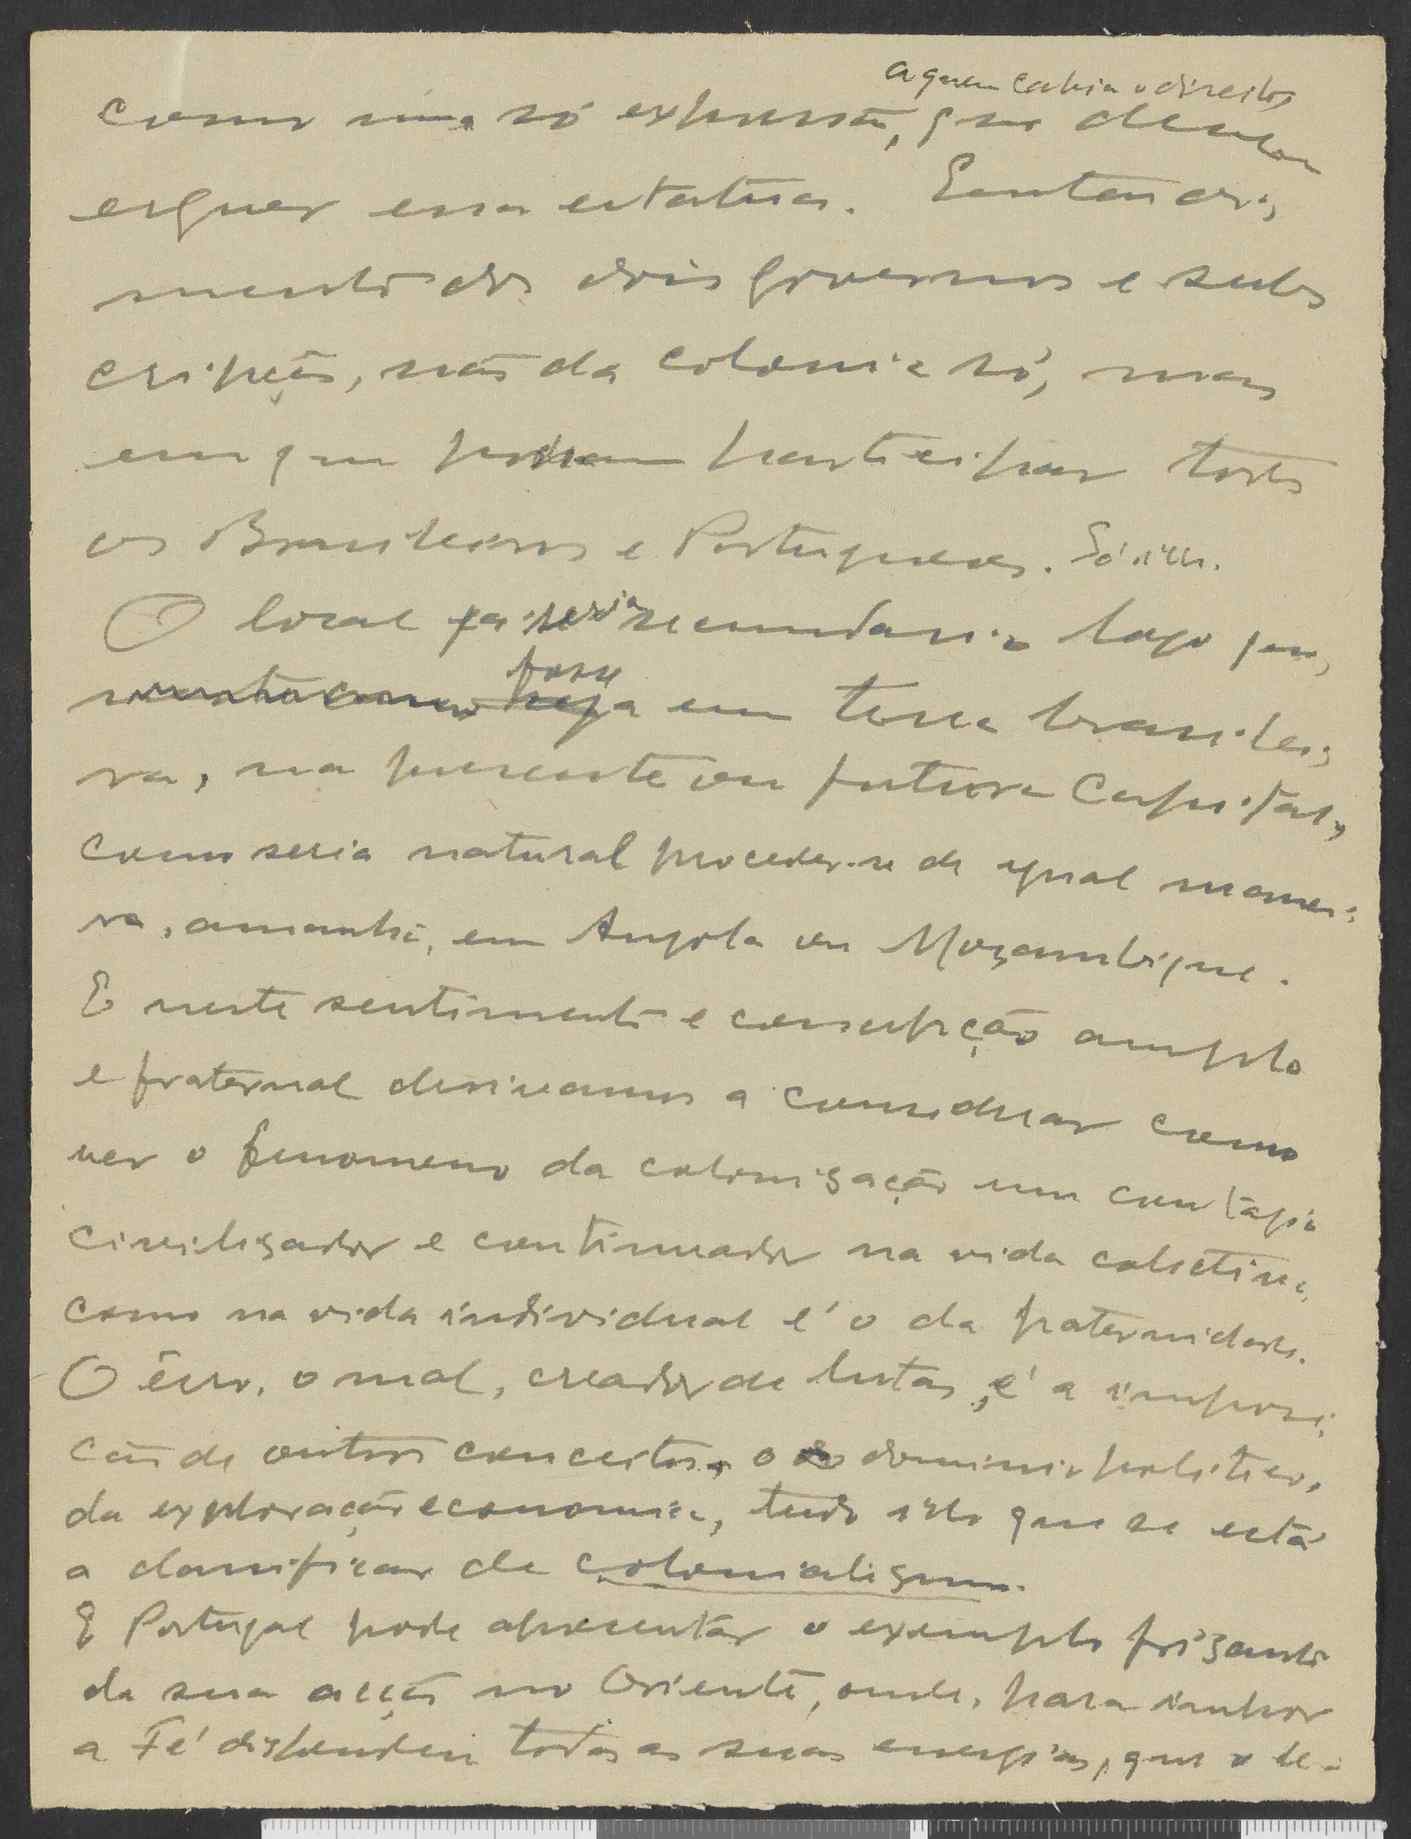 a quem cabia o direito
como uma só expressão, que deviam
erguer essa estatua. Entendi-
mento dos dois governos e subs
cripção, não da colonia só, mas
em que possam participar todos
os Brasileiros e Portugueses. Só
O local seria secundario logo que,
fosse em terra brasilei-
ra, na presente ou futura Capital,
como seria natural proceder-se de igual manei-
ra, amanhã, em Angola ou Moçambique.
E neste sentimento e concepção amplo
e fraternal deviamos a considerar como
ver o fenomeno da colonisação um contagio
civilisador e continuador na vida colectiva,
como na vida individual é o da paternidade.
O êrro, o mal, creador de lutas, é a imposi-
ção de outros conceitos, o do dominio politico,
da exploração economica, tudo isto que se está
a classificar de colonialismo.
E Portugal pode apresentar o exemplo frisante
da sua acção no Oriente, onde, para impor
a Fé dispendeu todas as suas energias, que o le-